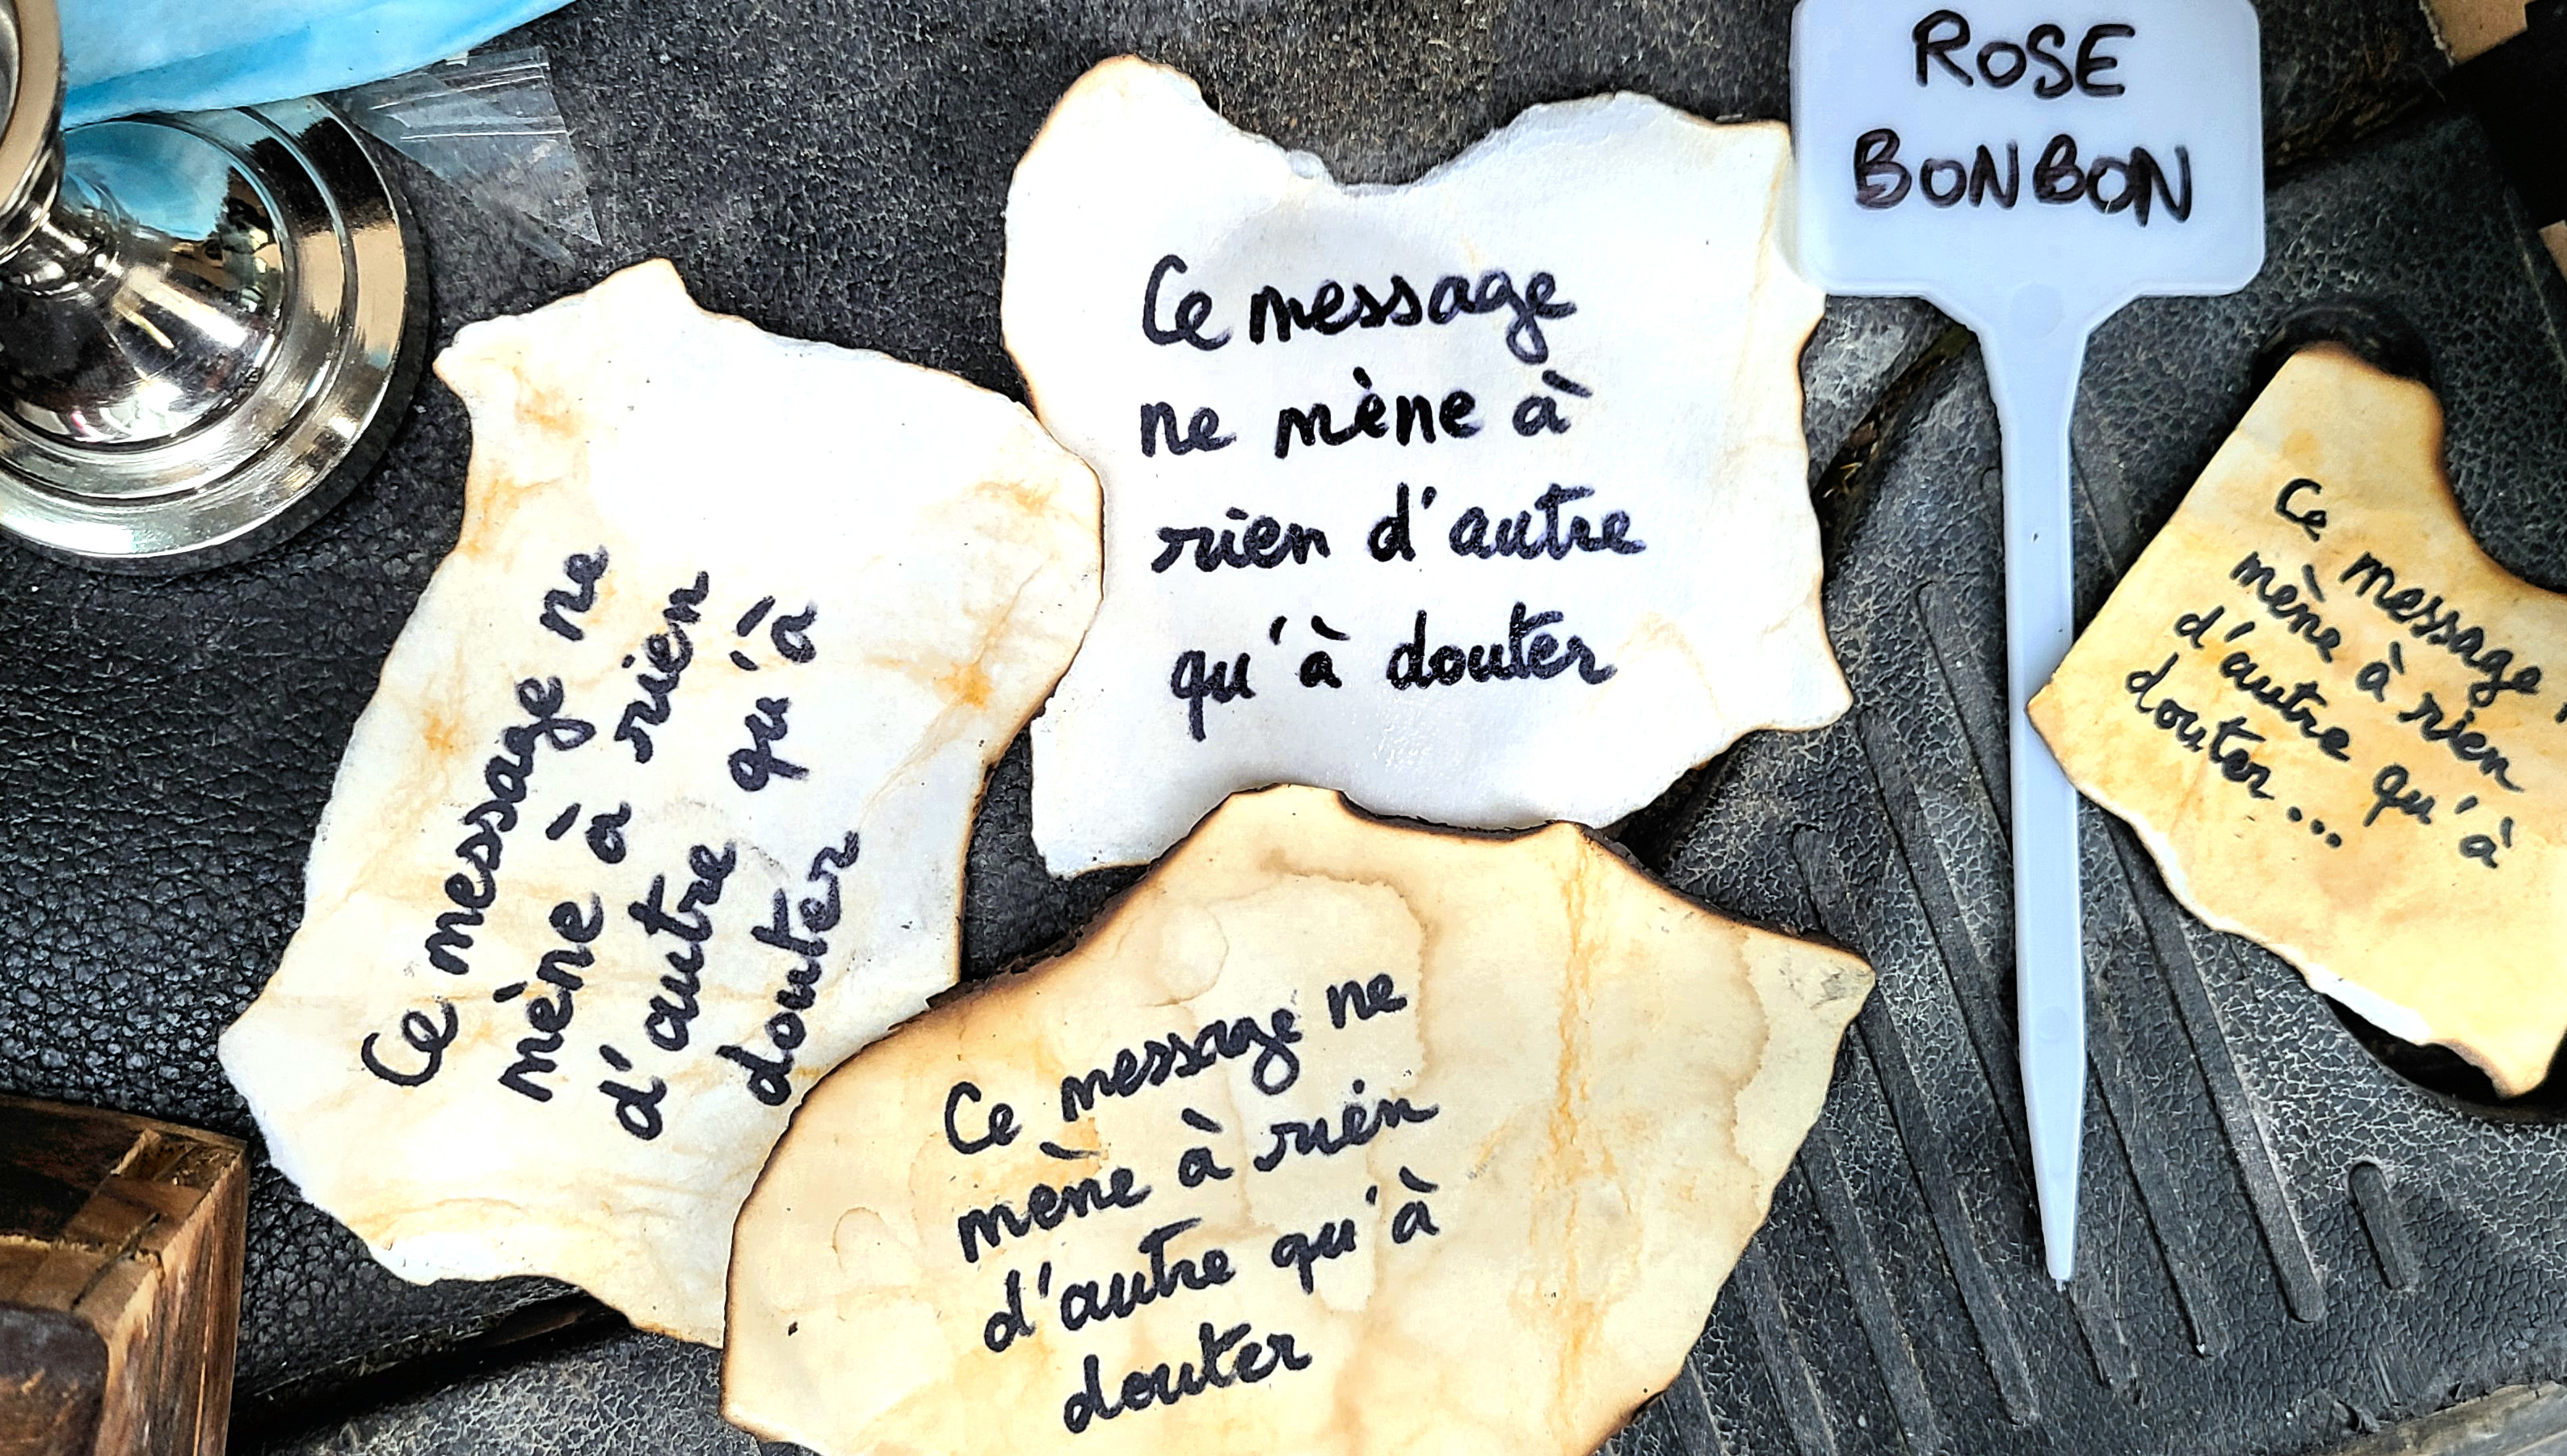 Ce message ne
mène à rien
d'autre qu'à
douter
Ce message
ne mène à
rien d'autre
qu'à douter
ROSE
BONBON
Ce message
mène à rien
d'autre qu'à
douter...
Ce message ne
mène à rien
d'autre qu'à
douter